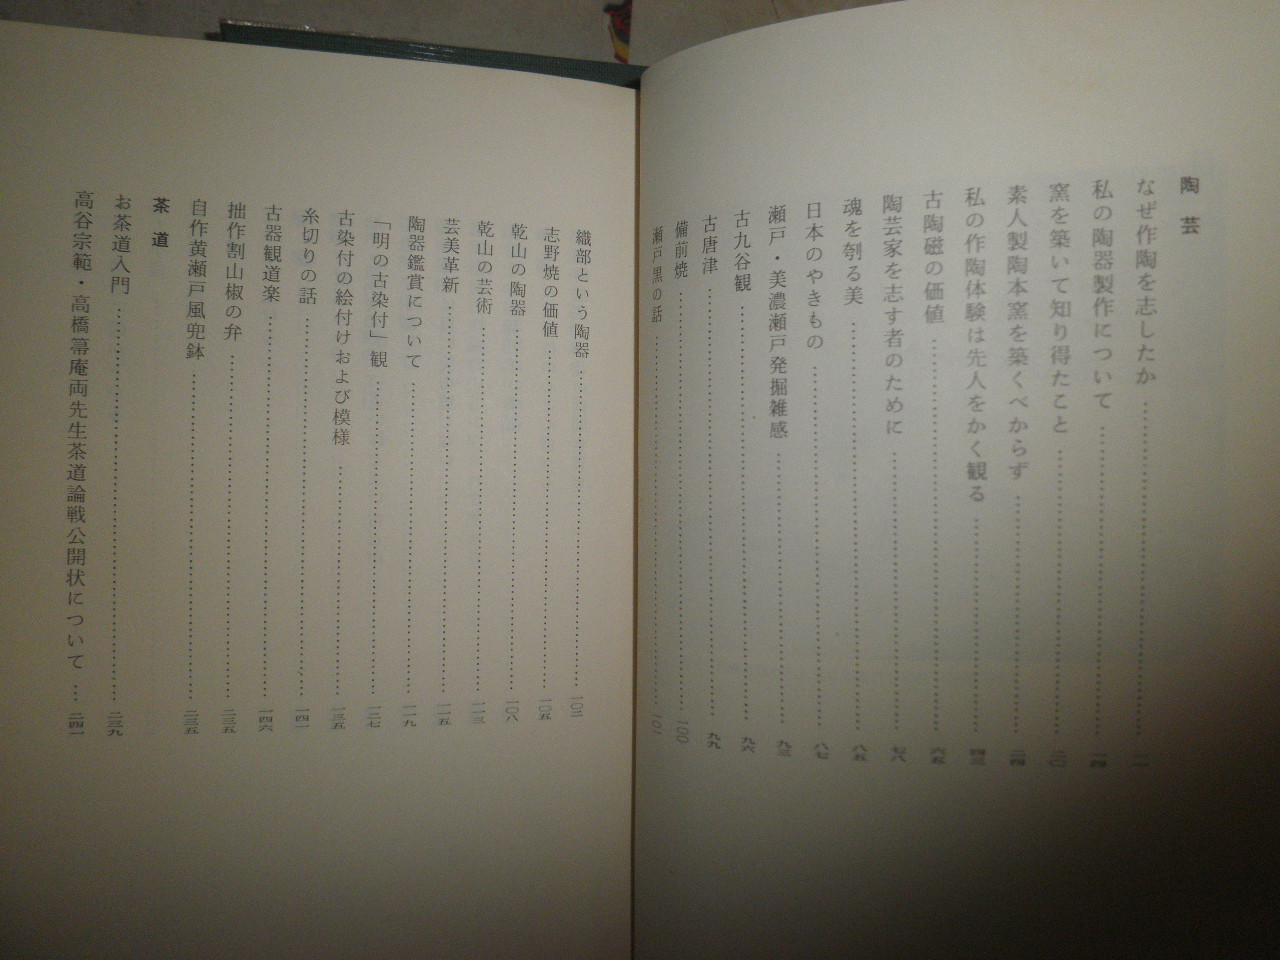 陶芸
なぜ作陶を志したか……一一
私の陶器製作について……一四
窯を築いて知り得たこと……二〇
素人製陶本窯を築くべからず……二四
私の作陶体験は先人をかく観る……四三
古陶磁の価値……六五
陶芸家を志す者のために……七八
魂を刳る美……八五
日本のやきもの……八七
瀬戸・美濃瀬戸発掘雑感……九三
古九谷観……九六
古唐津……九九
備前焼……一〇〇
瀬戸黒の話……一〇一
織部という陶器……一〇三
志野焼の価値……一〇五
乾山の陶器……一〇八
乾山の芸術……一一三
芸美革新……一一五
陶器鑑賞について……一一九
「明の古染付」観……一二七
古染付の絵付けおよび模様……一三五
糸切りの話……一四一
古器観道楽……一四六
拙作割山椒の弁……二三五
自作黄瀬戸風兜鉢……二三五
茶道
お茶道入門……二三九
高谷宗範・高橋箒庵両先生茶道論戦公開状について…二四一